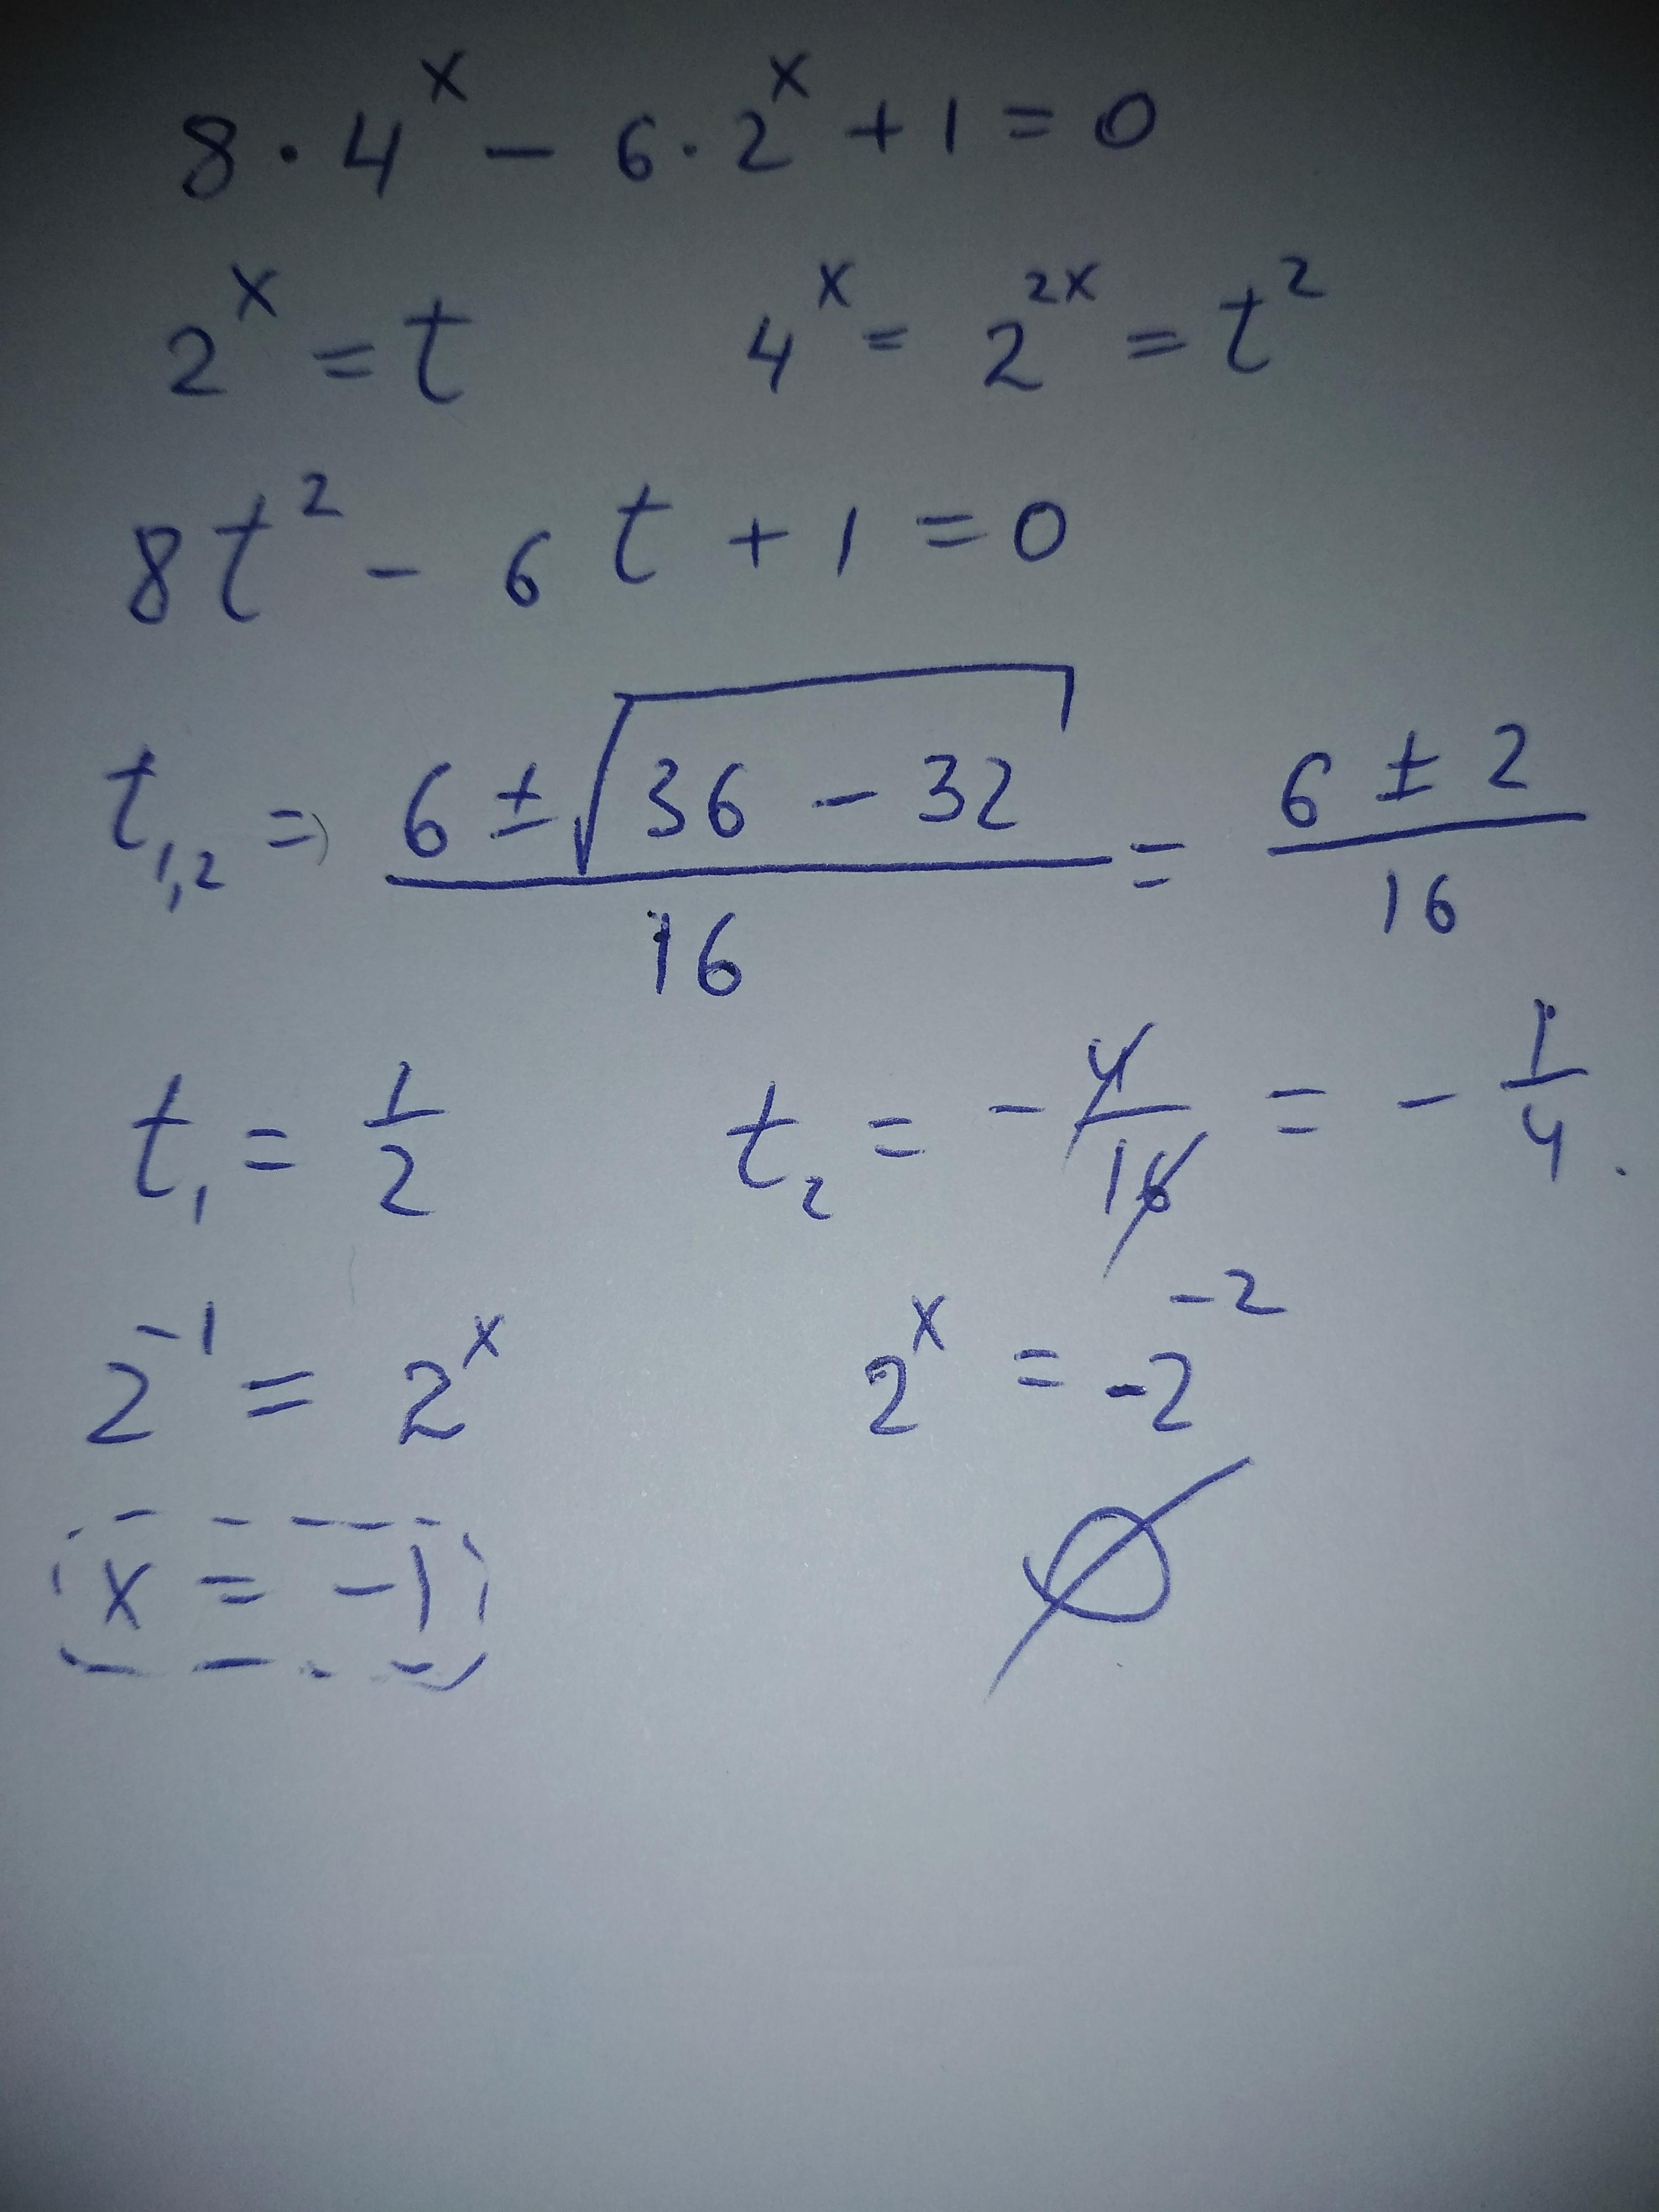 8 · 4^x − 6 · 2^x + 1 = 0
2^x = t    4^x = 2^{2x} = t^2
8t^2 − 6t + 1 = 0
t_{1,2} = (6 ± √(36 − 32)) / 16 = (6 ± 2) / 16
t_1 = 1/2    t_2 = − 4/16 = − 1/4.
2^{−1} = 2^x    2^x = −2^{−2}
x = −1    ∅